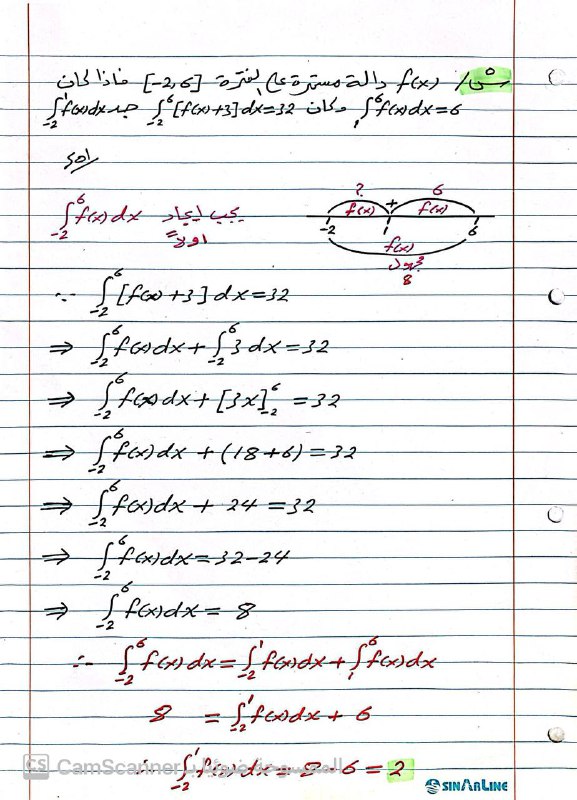 س/ f(x) دالة مستمرة على الفترة [-2,6] فاذا كان
∫₁⁶ f(x)dx=6 وكان ∫₋₂⁶ [f(x)+3]dx=32 جد ∫₋₂¹ f(x)dx
Sol
يجب ايجاد ∫₋₂⁶ f(x)dx
اولاً
? + 6
f(x) f(x)
-2 1 6
f(x)
مجهول
8
∵ ∫₋₂⁶ [f(x)+3]dx=32
⇒ ∫₋₂⁶ f(x)dx + ∫₋₂⁶ 3 dx = 32
⇒ ∫₋₂⁶ f(x)dx + [3x]₋₂⁶ = 32
⇒ ∫₋₂⁶ f(x)dx + (18+6) = 32
⇒ ∫₋₂⁶ f(x)dx + 24 = 32
⇒ ∫₋₂⁶ f(x)dx = 32-24
⇒ ∫₋₂⁶ f(x)dx = 8
∴ ∫₋₂⁶ f(x)dx = ∫₋₂¹ f(x)dx + ∫₁⁶ f(x)dx
8 = ∫₋₂¹ f(x)dx + 6
∴ ∫₋₂¹ f(x)dx = 8-6 = 2
CS CamScanner الممسوحة ضوئيا بـ
SINARLINE